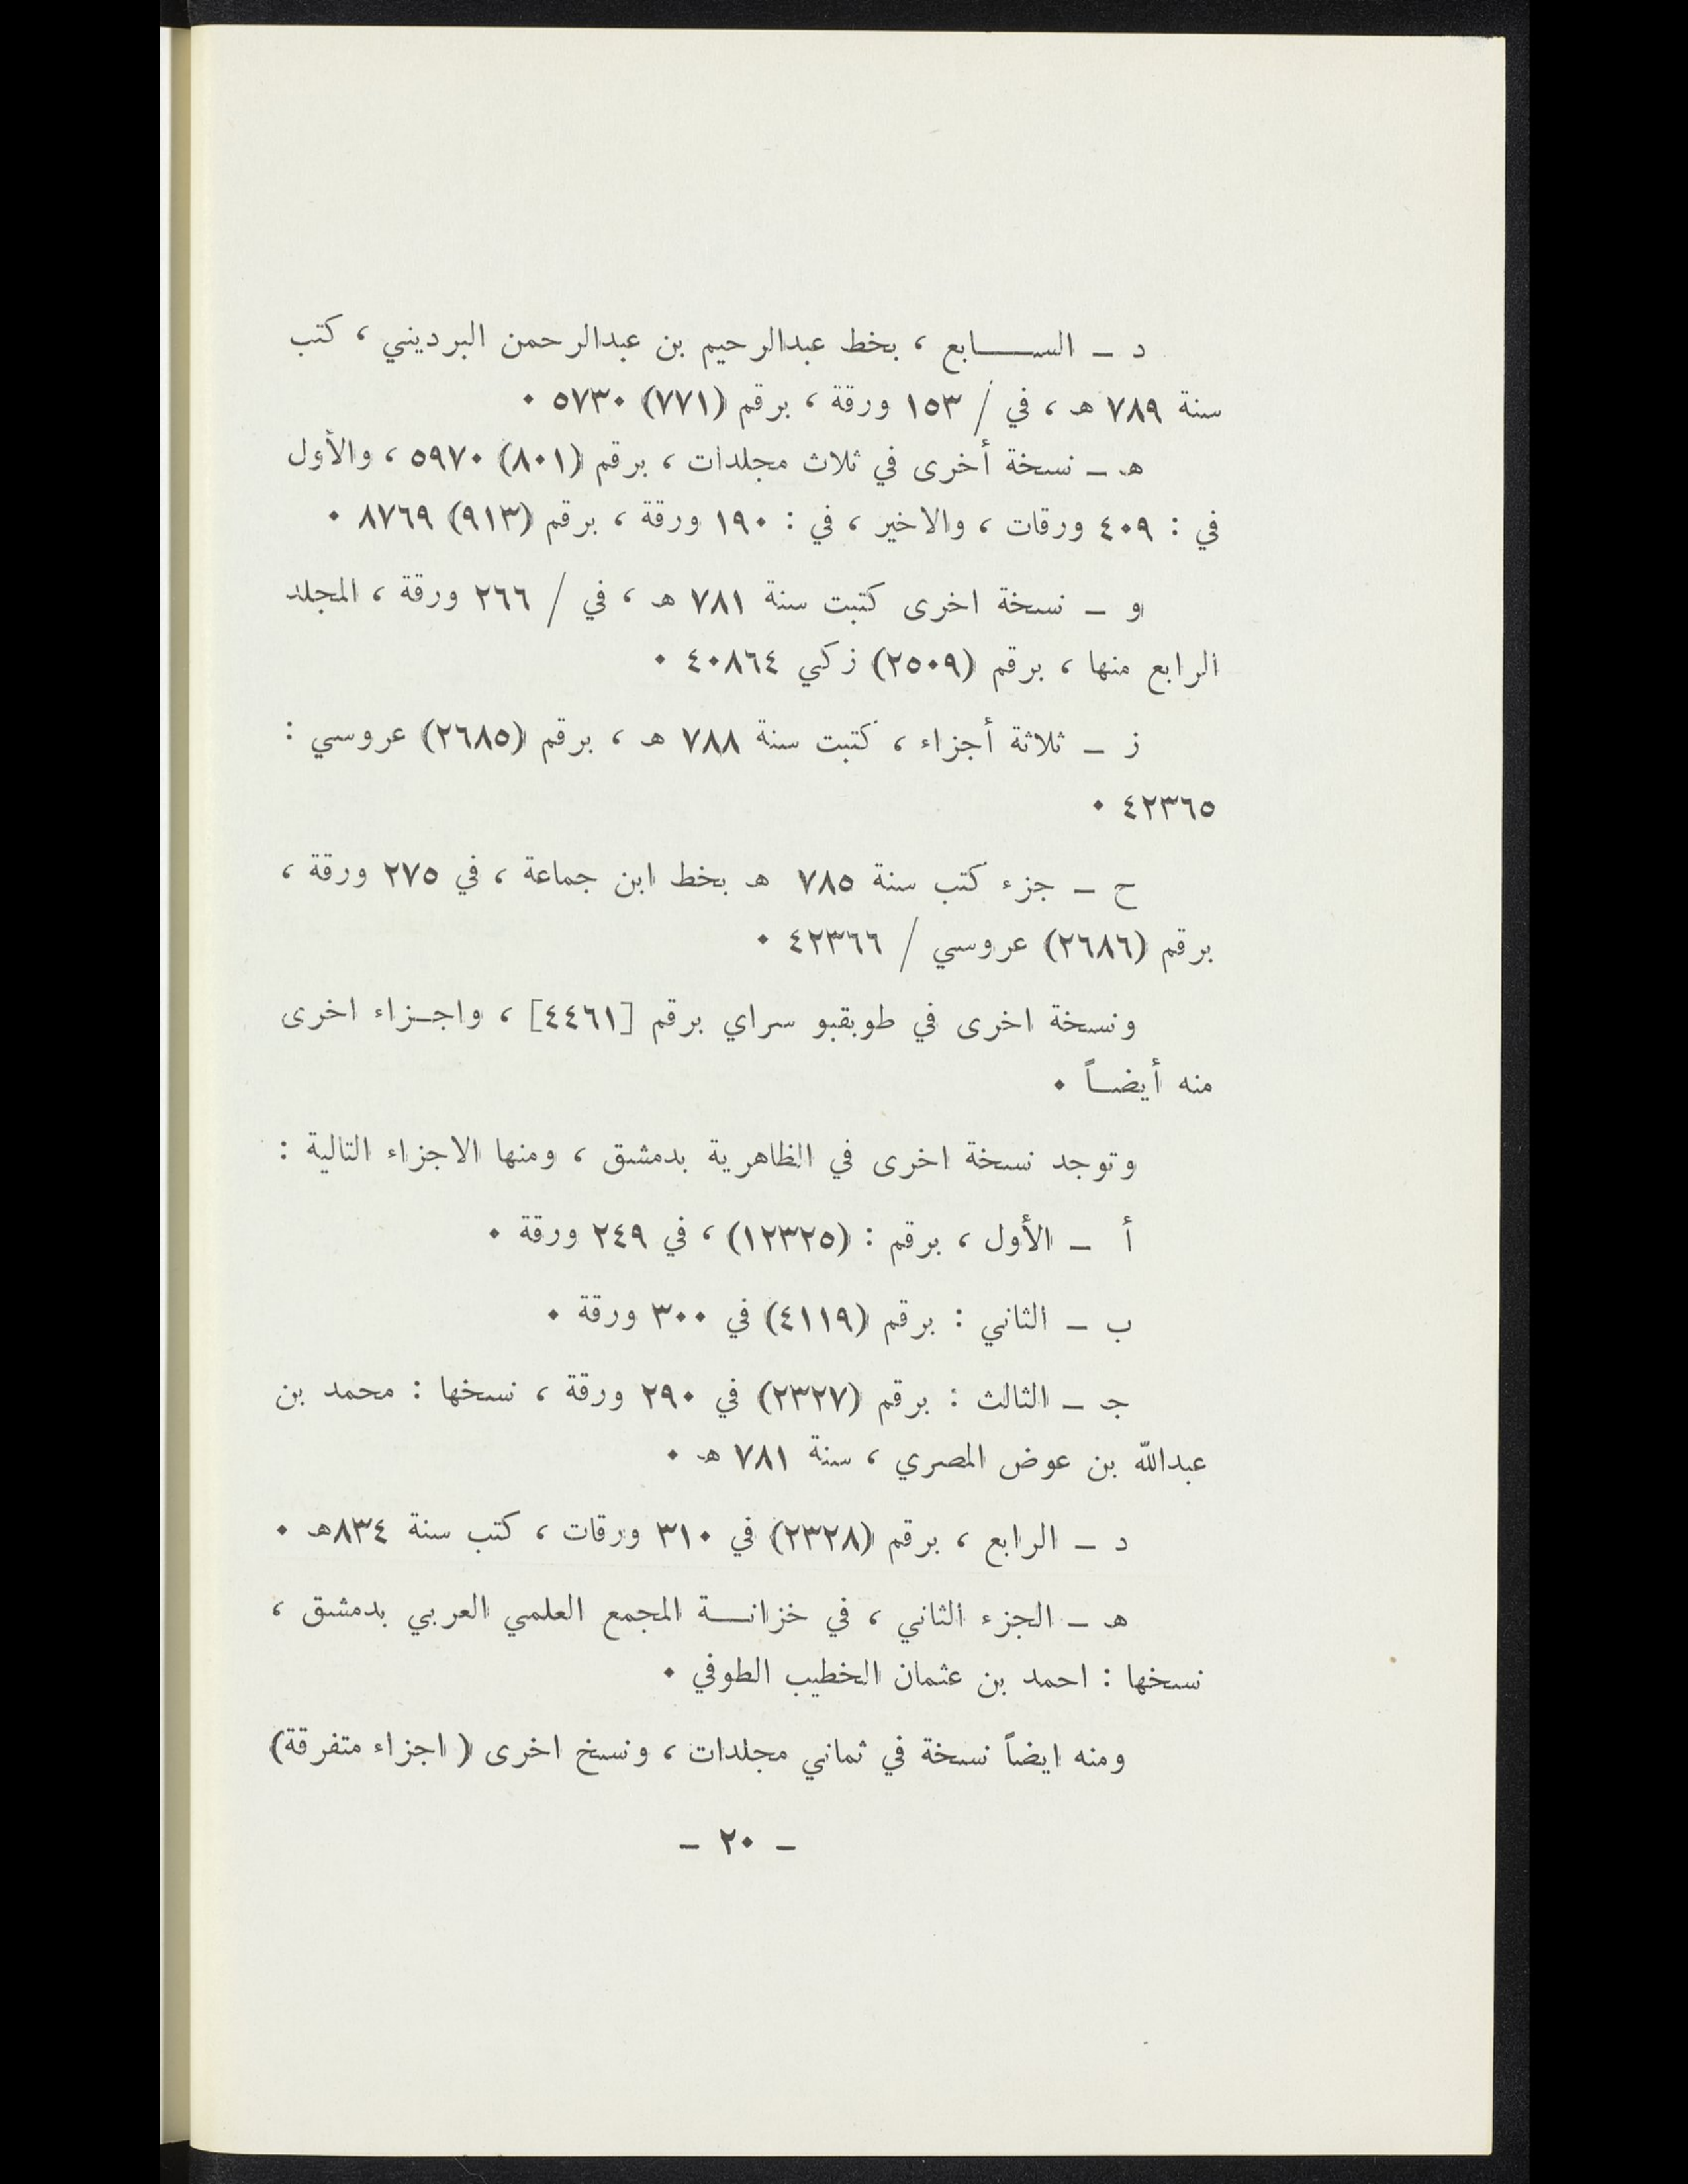 د – الســــابع ، بخط عبدالرحيم بن عبدالرحمن البرديني ، كتب
سنة ٧٨٩ هـ ، في / ١٥٣ ورقة ، برقم (٧٧١) ٥٧٣٠ ٠
هـ – نسخة أخرى في ثلاث مجلدات ، برقم (٨٠١) ٥٩٧٠ ، والأول
في : ٤٠٩ ورقات ، والاخير ، في : ١٩٠ ورقة ، برقم (٩١٣) ٨٧٦٩ ٠
و – نسخة اخرى كتبت سنة ٧٨١ هـ ، في / ٢٦٦ ورقة ، المجلد
الرابع منها ، برقم (٢٥٠٩) زكي ٤٠٨٦٤ ٠
ز – ثلاثة أجزاء ، كتبت سنة ٧٨٨ هـ ، برقم (٢٦٨٥) عروسي :
٤٢٣٦٥ ٠
ح – جزء كتب سنة ٧٨٥ هـ بخط ابن جماعة ، في ٢٧٥ ورقة ،
برقم (٢٦٨٦) عروسي / ٤٢٣٦٦ ٠
ونسخة اخرى في طوبقبو سراي برقم [٤٤٦١] ، واجـزاء اخرى
منه أيضـاً ٠
وتوجد نسخة اخرى في الظاهرية بدمشق ، ومنها الاجزاء التالية :
أ – الأول ، برقم : (١٢٣٢٥) ، في ٢٤٩ ورقة ٠
ب – الثاني : برقم (٤١١٩) في ٣٠٠ ورقة ٠
جـ – الثالث : برقم (٢٣٢٧) في ٢٩٠ ورقة ، نسخها : محمد بن
عبدالله بن عوض المصري ، سنة ٧٨١ هـ ٠
د – الرابع ، برقم (٢٣٢٨) في ٣١٠ ورقات ، كتب سنة ٨٣٤هـ ٠
هـ – الجزء الثاني ، في خزانـــة المجمع العلمي العربي بدمشق ،
نسخها : احمد بن عثمان الخطيب الطوفي ٠
ومنه ايضاً نسخة في ثماني مجلدات ، ونسخ اخرى ( اجزاء متفرقة)
– ٢٠ –